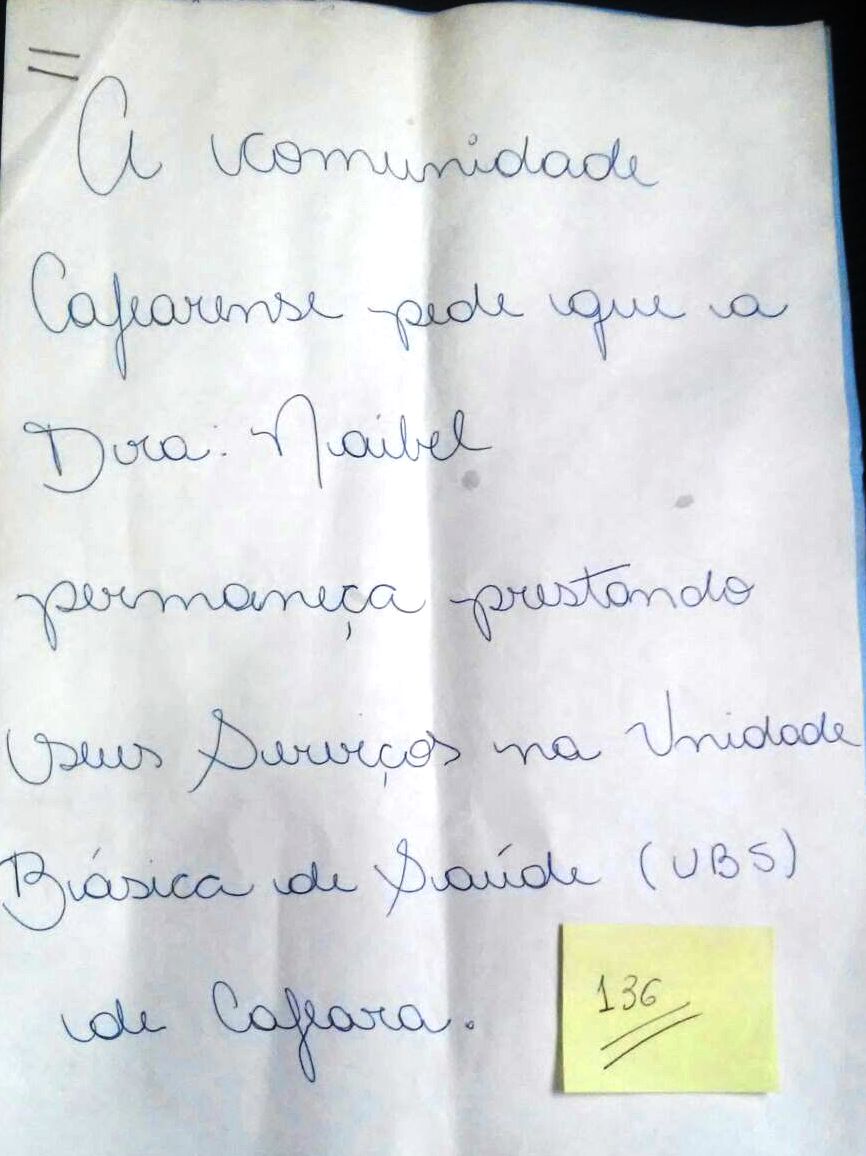 A comunidade
Cafearense pede que a
Dra: Maibel
permaneça prestando
seus Serviços na Unidade
Básica de Saúde (UBS)
de Cafeara.
136